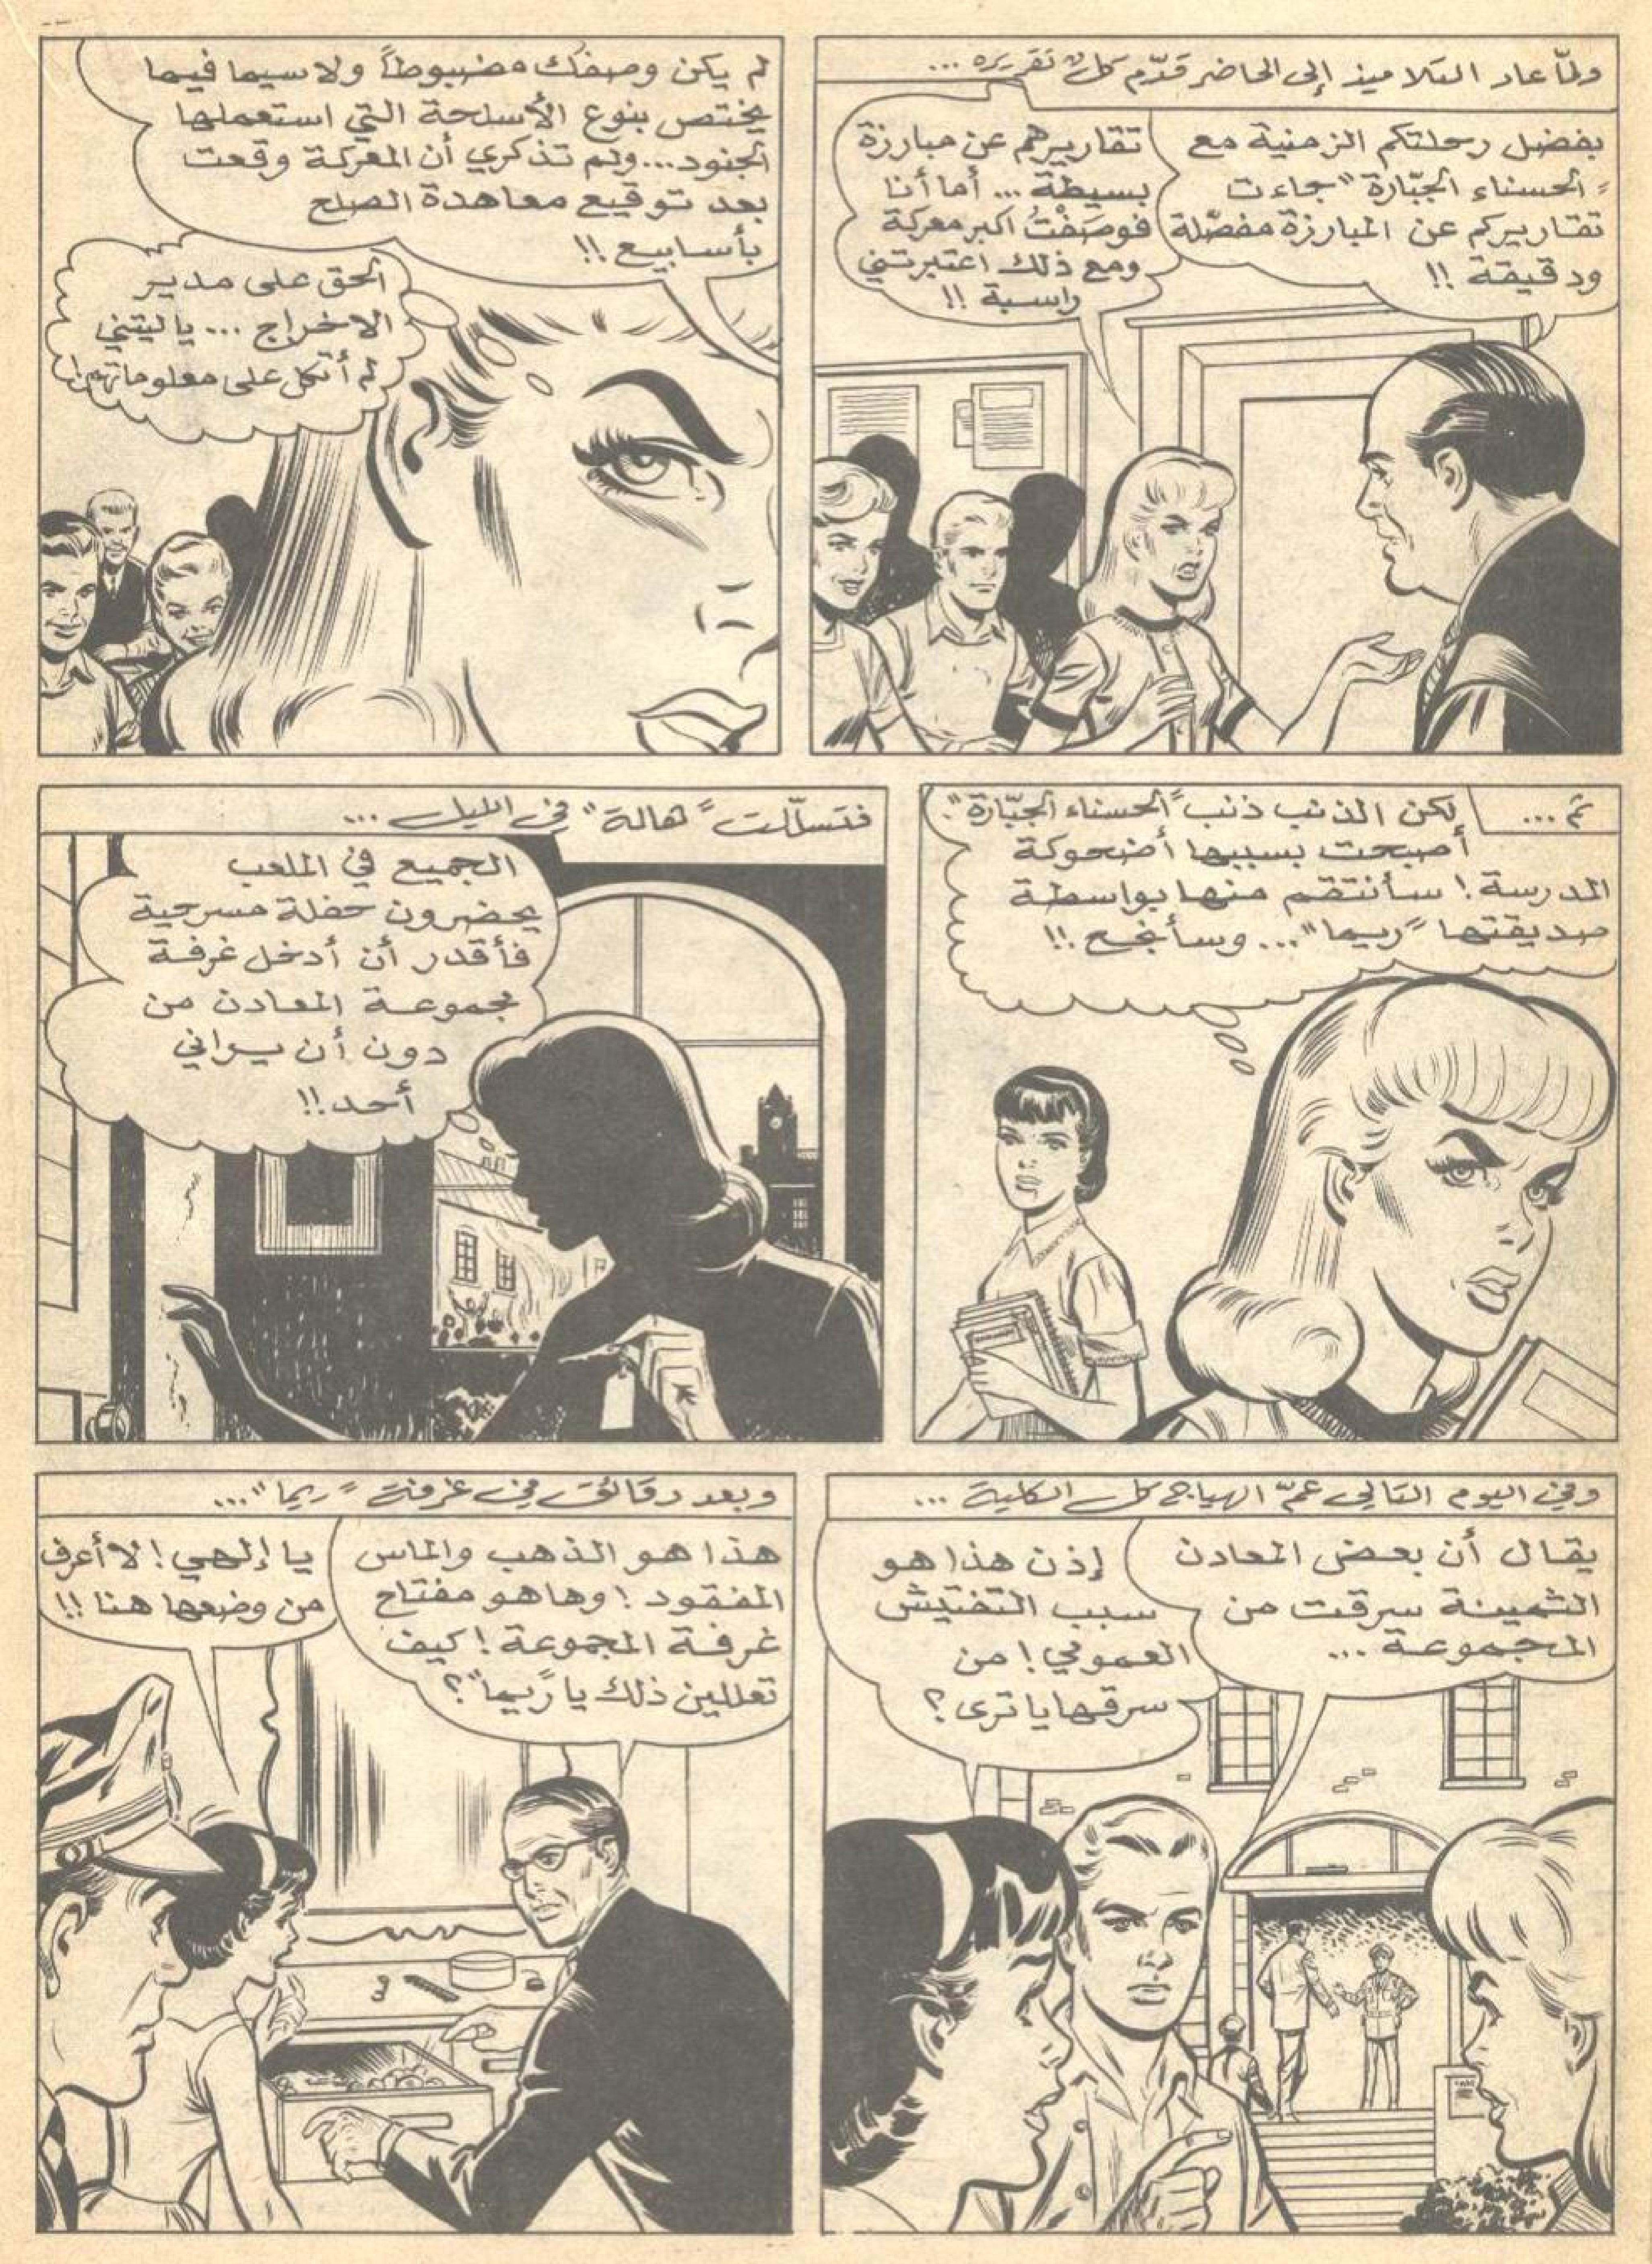 ولمّا عاد التلاميذ إلى الحاضر قدّم كلٌ تقريره ...
بفضل رحلتكم الزمنية مع
"الحسناء الجبّارة" جاءت
تقاريركم عن المبارزة مفصّلة
ودقيقة !!
تقاريرهم عن مبارزة
بسيطة ... أما أنا
فوصَفْتُ اكبر معركة
ومع ذلك اعتبرتني
راسبة !!
لم يكن وصفك مضبوطاً ولا سيما فيما
يختص بنوع الأسلحة التي استعملها
الجنود ... ولم تذكري أن المعركة وقعت
بعد توقيع معاهدة الصلح
بأسابيع !!
الحق على مدير
الاخراج ... يا ليتني
لم أتكل على معلوماته !
ثم ...
لكن الذنب ذنب "الحسناء الجبّارة".
أصبحت بسببها أضحوكة
المدرسة ! سأنتقم منها بواسطة
صديقتها "ريما" ... وسأنجح !!
فتسلّلت "هالة" في الليل ...
الجميع في الملعب
يحضرون حفلة مسرحية
فأقدر أن أدخل غرفة
مجموعة المعادن من
دون أن يراني
أحد !!
وفي اليوم التالي عمّ الهياج كل الكلية ...
يقال أن بعض المعادن
الثمينة سرقت من
المجموعة ...
إذن هذا هو
سبب التفتيش
العمومي ! من
سرقها يا ترى ؟
وبعد دقائق في غرفة "ريما" ...
هذا هو الذهب والماس
المفقود ! وها هو مفتاح
غرفة المجموعة ! كيف
تعللين ذلك يا "ريما" ؟
يا إلهي ! لا أعرف
من وضعها هنا !!